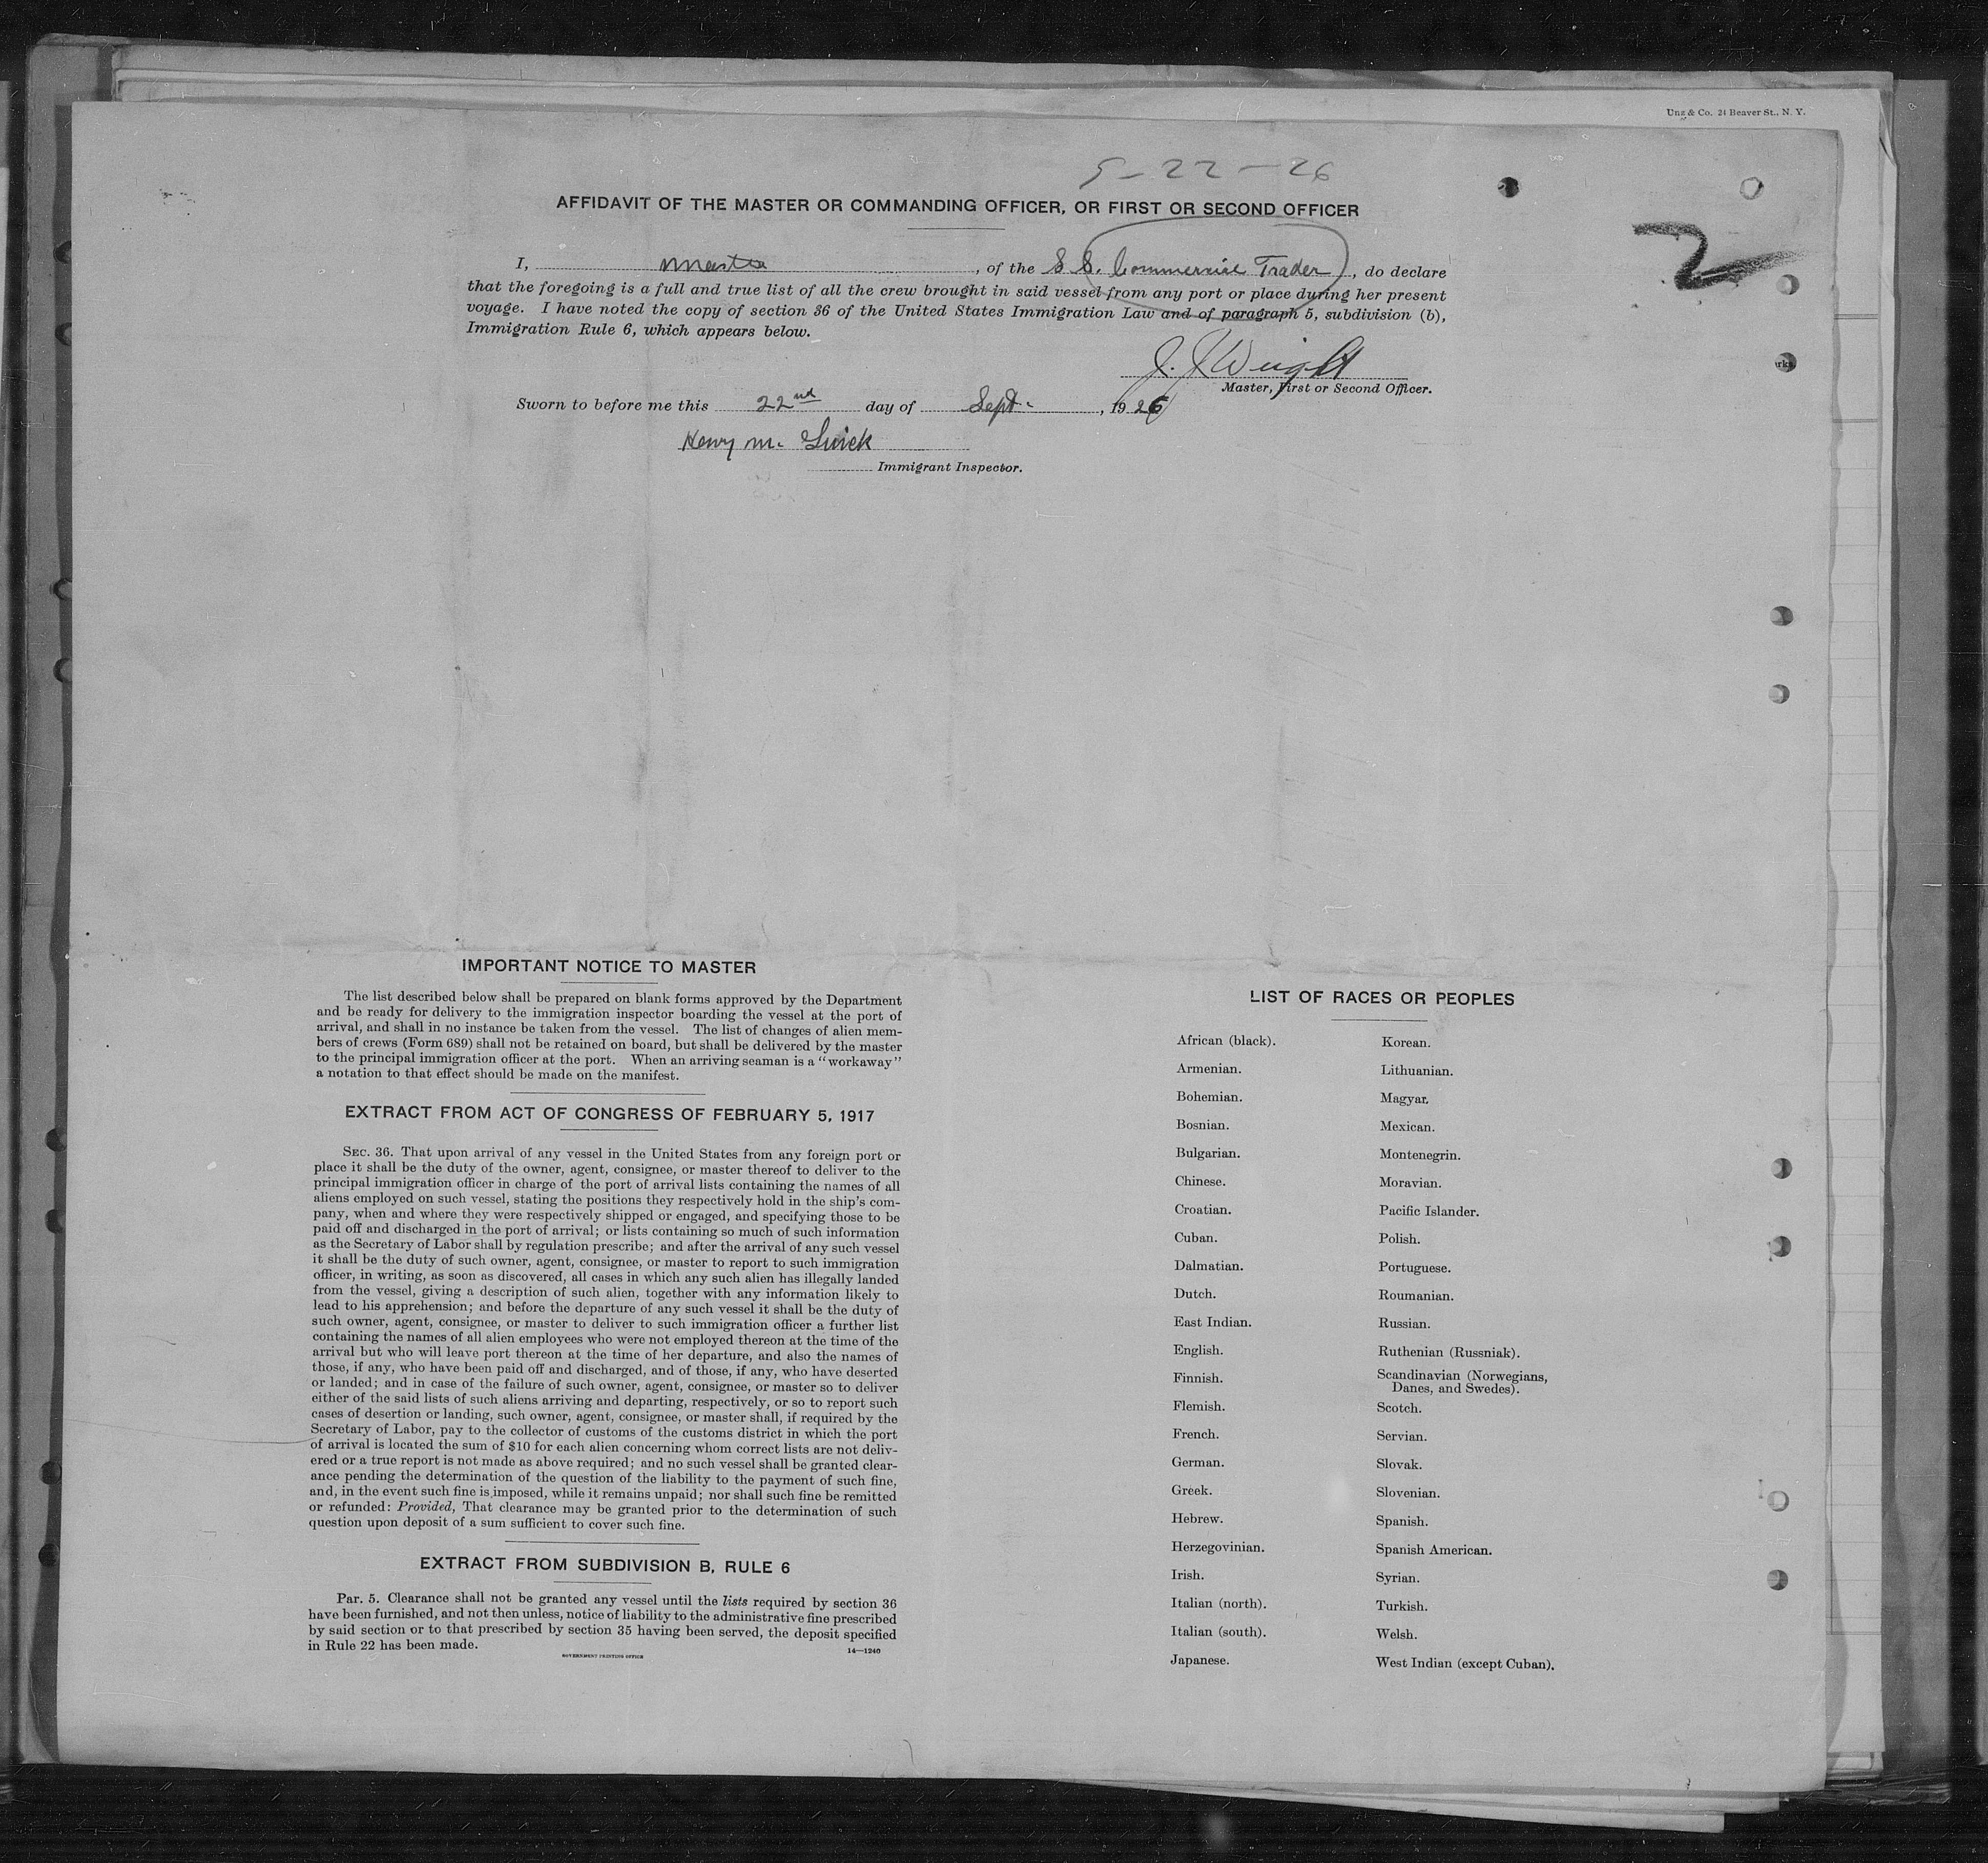 Unz & Co. 24 Beaver St., N. Y.
9-22-26
AFFIDAVIT OF THE MASTER OR COMMANDING OFFICER, OR FIRST OR SECOND OFFICER
2
I, Master, of the S S. Commercial Trader, do declare
that the foregoing is a full and true list of all the crew brought in said vessel from any port or place during her present
voyage. I have noted the copy of section 36 of the United States Immigration Law and of paragraph 5, subdivision (b),
Immigration Rule 6, which appears below.
J. J. Wright
Master, First or Second Officer.
Sworn to before me this 22nd day of Sept., 1926
Henry M.
Immigrant Inspector.
IMPORTANT NOTICE TO MASTER
The list described below shall be prepared on blank forms approved by the Department
and be ready for delivery to the immigration inspector boarding the vessel at the port of
arrival, and shall in no instance be taken from the vessel. The list of changes of alien mem-
bers of crews (Form 689) shall not be retained on board, but shall be delivered by the master
to the principal immigration officer at the port. When an arriving seaman is a "workaway"
a notation to that effect should be made on the manifest.
EXTRACT FROM ACT OF CONGRESS OF FEBRUARY 5, 1917
SEC. 36. That upon arrival of any vessel in the United States from any foreign port or
place it shall be the duty of the owner, agent, consignee, or master thereof to deliver to the
principal immigration officer in charge of the port of arrival lists containing the names of all
aliens employed on such vessel, stating the positions they respectively hold in the ship's com-
pany, when and where they were respectively shipped or engaged, and specifying those to be
paid off and discharged in the port of arrival; or lists containing so much of such information
as the Secretary of Labor shall by regulation prescribe; and after the arrival of any such vessel
it shall be the duty of such owner, agent, consignee, or master to report to such immigration
officer, in writing, as soon as discovered, all cases in which any such alien has illegally landed
from the vessel, giving a description of such alien, together with any information likely to
lead to his apprehension; and before the departure of any such vessel it shall be the duty of
such owner, agent, consignee, or master to deliver to such immigration officer a further list
containing the names of all alien employees who were not employed thereon at the time of the
arrival but who will leave port thereon at the time of her departure, and also the names of
those, if any, who have been paid off and discharged, and of those, if any, who have deserted
or landed; and in case of the failure of such owner, agent, consignee, or master so to deliver
either of the said lists of such aliens arriving and departing, respectively, or so to report such
cases of desertion or landing, such owner, agent, consignee, or master shall, if required by the
Secretary of Labor, pay to the collector of customs of the customs district in which the port
of arrival is located the sum of $10 for each alien concerning whom correct lists are not deliv-
ered or a true report is not made as above required; and no such vessel shall be granted clear-
ance pending the determination of the question of the liability to the payment of such fine,
and, in the event such fine is imposed, while it remains unpaid; nor shall such fine be remitted
or refunded: Provided, That clearance may be granted prior to the determination of such
question upon deposit of a sum sufficient to cover such fine.
EXTRACT FROM SUBDIVISION B, RULE 6
Par. 5. Clearance shall not be granted any vessel until the lists required by section 36
have been furnished, and not then unless, notice of liability to the administrative fine prescribed
by said section or to that prescribed by section 35 having been served, the deposit specified
in Rule 22 has been made.
GOVERNMENT PRINTING OFFICE
14—1240
LIST OF RACES OR PEOPLES
African (black).
Armenian.
Bohemian.
Bosnian.
Bulgarian.
Chinese.
Croatian.
Cuban.
Dalmatian.
Dutch.
East Indian.
English.
Finnish.
Flemish.
French.
German.
Greek.
Hebrew.
Herzegovinian.
Irish.
Italian (north).
Italian (south).
Japanese.
Korean.
Lithuanian.
Magyar.
Mexican.
Montenegrin.
Moravian.
Pacific Islander.
Polish.
Portuguese.
Roumanian.
Russian.
Ruthenian (Russniak).
Scandinavian (Norwegians,
Danes, and Swedes).
Scotch.
Servian.
Slovak.
Slovenian.
Spanish.
Spanish American.
Syrian.
Turkish.
Welsh.
West Indian (except Cuban).